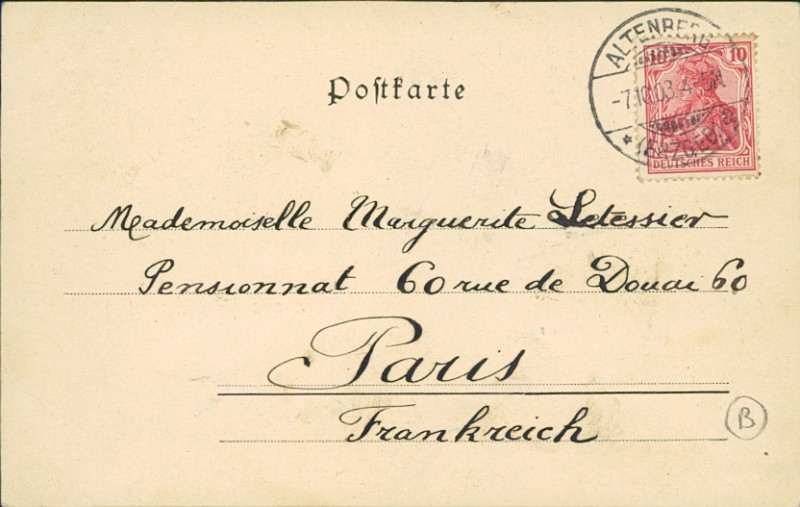 ALTENBERG
10 10
Poſtkarte
-7.10.03. 4-5N.
* (ERZGEB.)
DEUTSCHES REICH
Mademoiselle Marguerite Letessier
Pensionnat 60 rue de Douai 60
Paris
Frankreich
B